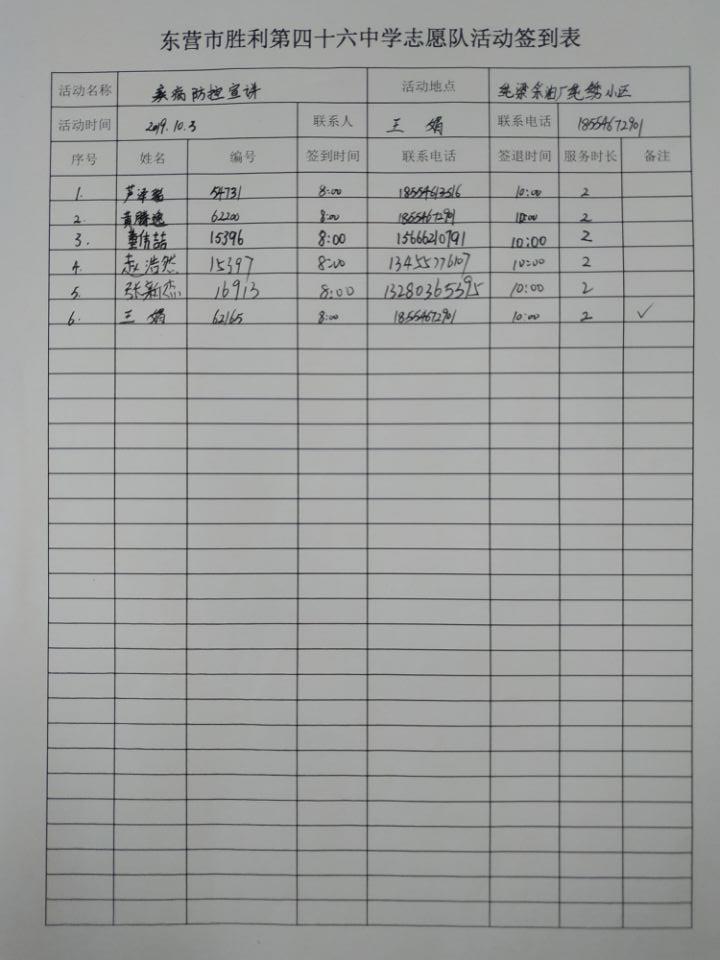 东营市胜利第四十六中学志愿队活动签到表
活动名称 疾病防控宣讲 活动地点 纯梁采油厂纯锦小区
活动时间 2019.10.3 联系人 王娟 联系电话 18554672901
序号 姓名 编号 签到时间 联系电话 签退时间 服务时长 备注
1. 芦泽 54731 8:00 18554613516 10:00 2
2. 黄腾逸 62200 8:00 18554672901 10:00 2
3. 董倩喆 15396 8:00 15666210791 10:00 2
4. 赵浩然 15397 8:00 13455776107 10:00 2
5. 张新杰 16913 8:00 13280365395 10:00 2
6. 王娟 62165 8:00 18554672901 10:00 2 ✓